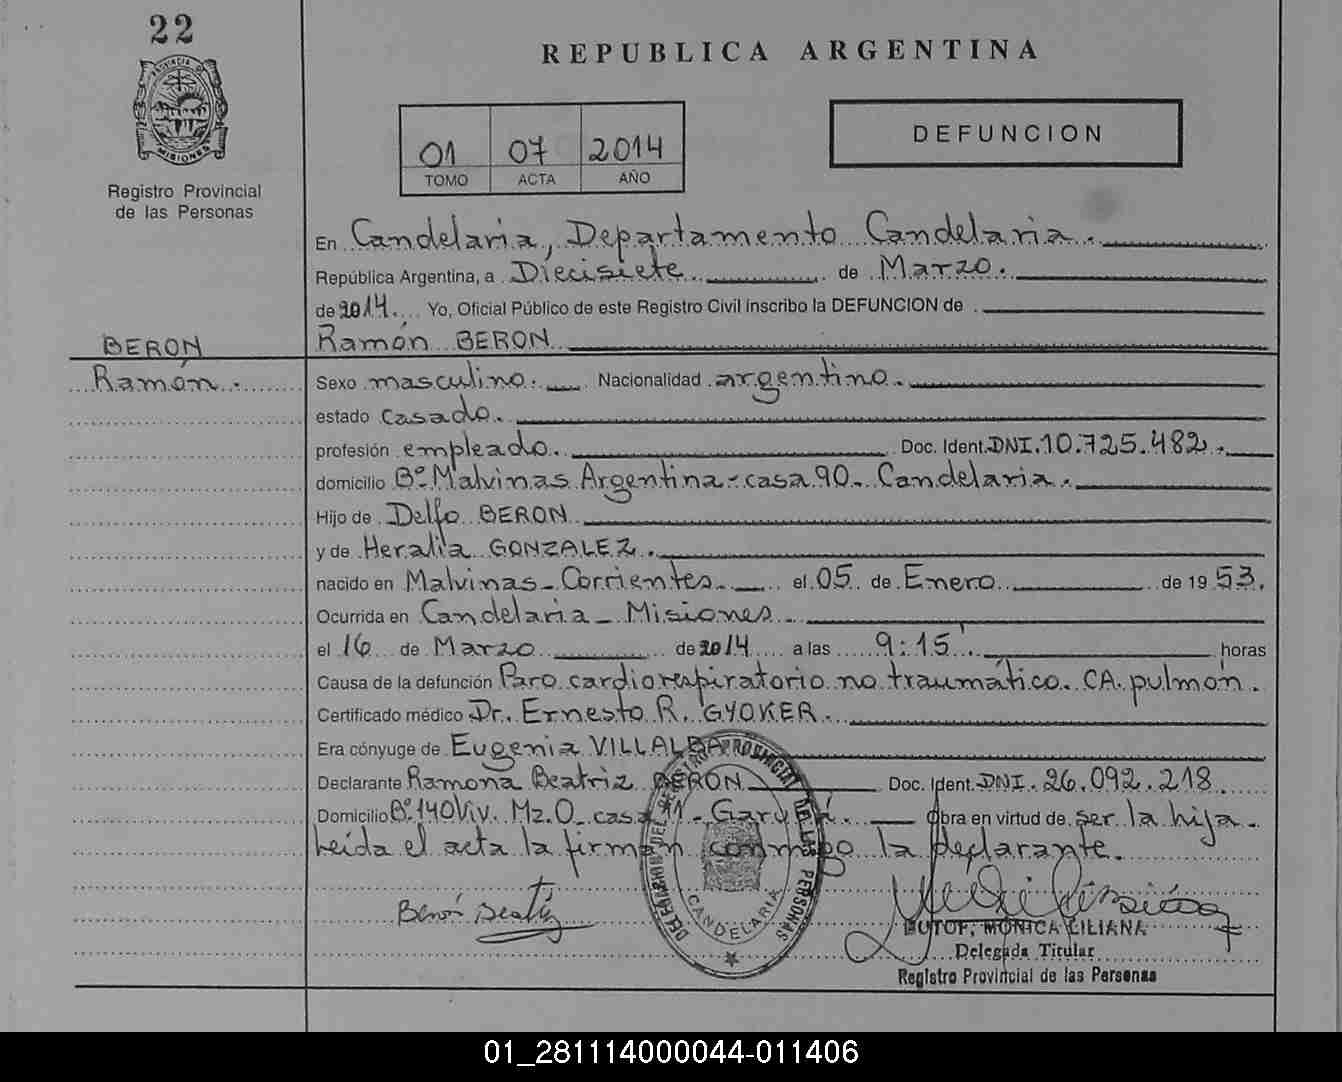 22
PROVINCIA DE
MISIONES
Registro Provincial
de las Personas
REPUBLICA ARGENTINA
01 07 2014
TOMO ACTA AÑO
DEFUNCION
En Candelaria, Departamento Candelaria.
República Argentina, a Diecisiete de Marzo.
de 2014. Yo, Oficial Público de este Registro Civil inscribo la DEFUNCION de
Ramón BERON
BERON
Ramón.
Sexo masculino. Nacionalidad argentino.
estado casado.
profesión empleado. Doc. Ident. DNI. 10.725.482.
domicilio Bº Malvinas Argentina - casa 90 - Candelaria.
Hijo de Delfo BERON
y de Heralia GONZALEZ.
nacido en Malvinas - Corrientes. el 05 de Enero de 19 53.
Ocurrida en Candelaria - Misiones
el 16 de Marzo de 2014 a las 9:15' horas
Causa de la defunción Paro cardiorespiratorio no traumático. CA. pulmón.
Certificado médico Dr. Ernesto R. GYOKER.
Era cónyuge de Eugenia VILLALBA
Declarante Ramona Beatriz BERON Doc. Ident. DNI. 26.092.218
Domicilio Bº 140 Viv. Mz. O casa 11 - Garupá. Obra en virtud de ser la hija.
Leída el acta la firman conmigo la declarante.
Berón Beatriz
DELEGACION DEL REGISTRO PROVINCIAL DE LAS PERSONAS
CANDELARIA
BUTOF, MONICA LILIANA
Delegada Titular
Registro Provincial de las Personas
01_281114000044-011406